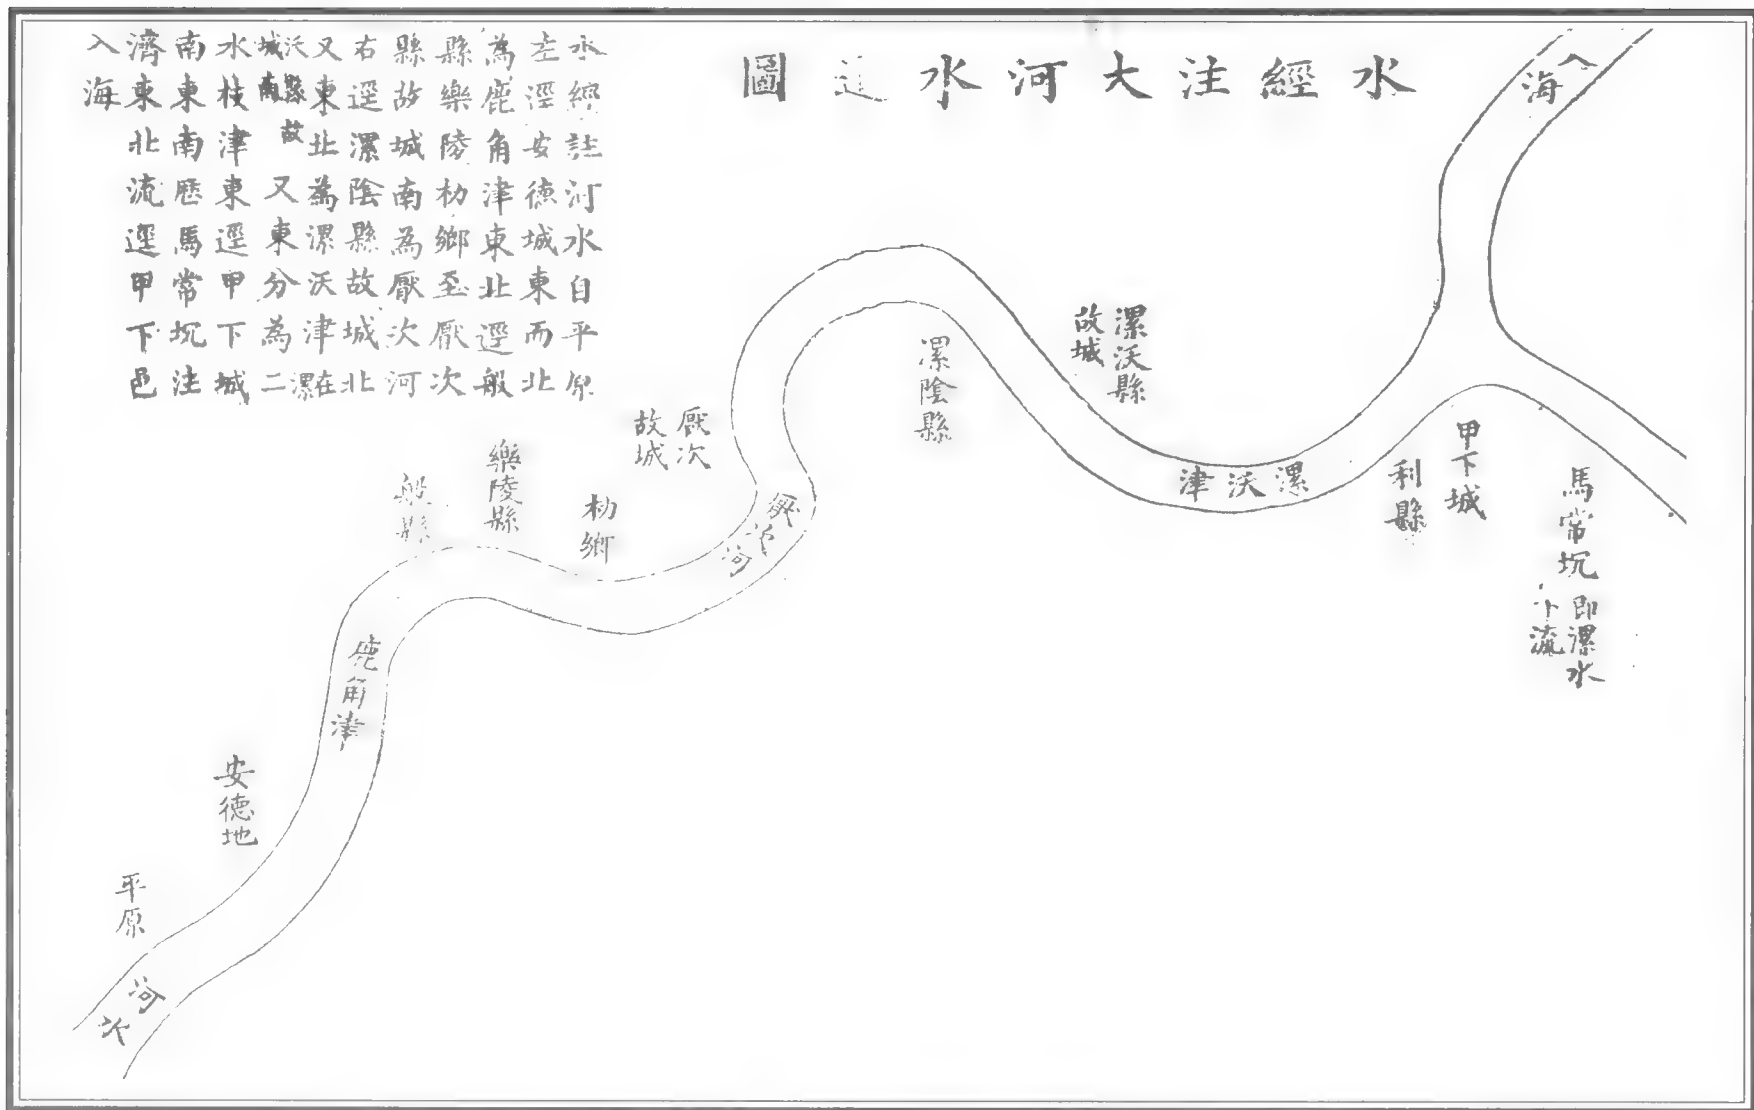 水經注大河水道圖
水經註河水自平原
左逕安德城東而北
為鹿角津東北逕般
縣樂陵朸鄉至厭次
縣故城南為厭次河
右逕漯陰縣故城北
又東北為漯沃津在漯
沃縣故
城南
又東分為二
水枝津東逕甲下城
南東南歷馬常坈注
濟東北流逕甲下邑
入海
入海
漯沃縣
故城
漯陰縣
厭次
故城
朸鄉
樂陵縣
般縣
厭次河
漯沃津
利縣
甲下城
馬常坈
即漯水
下流
鹿角津
安德地
平原
河水